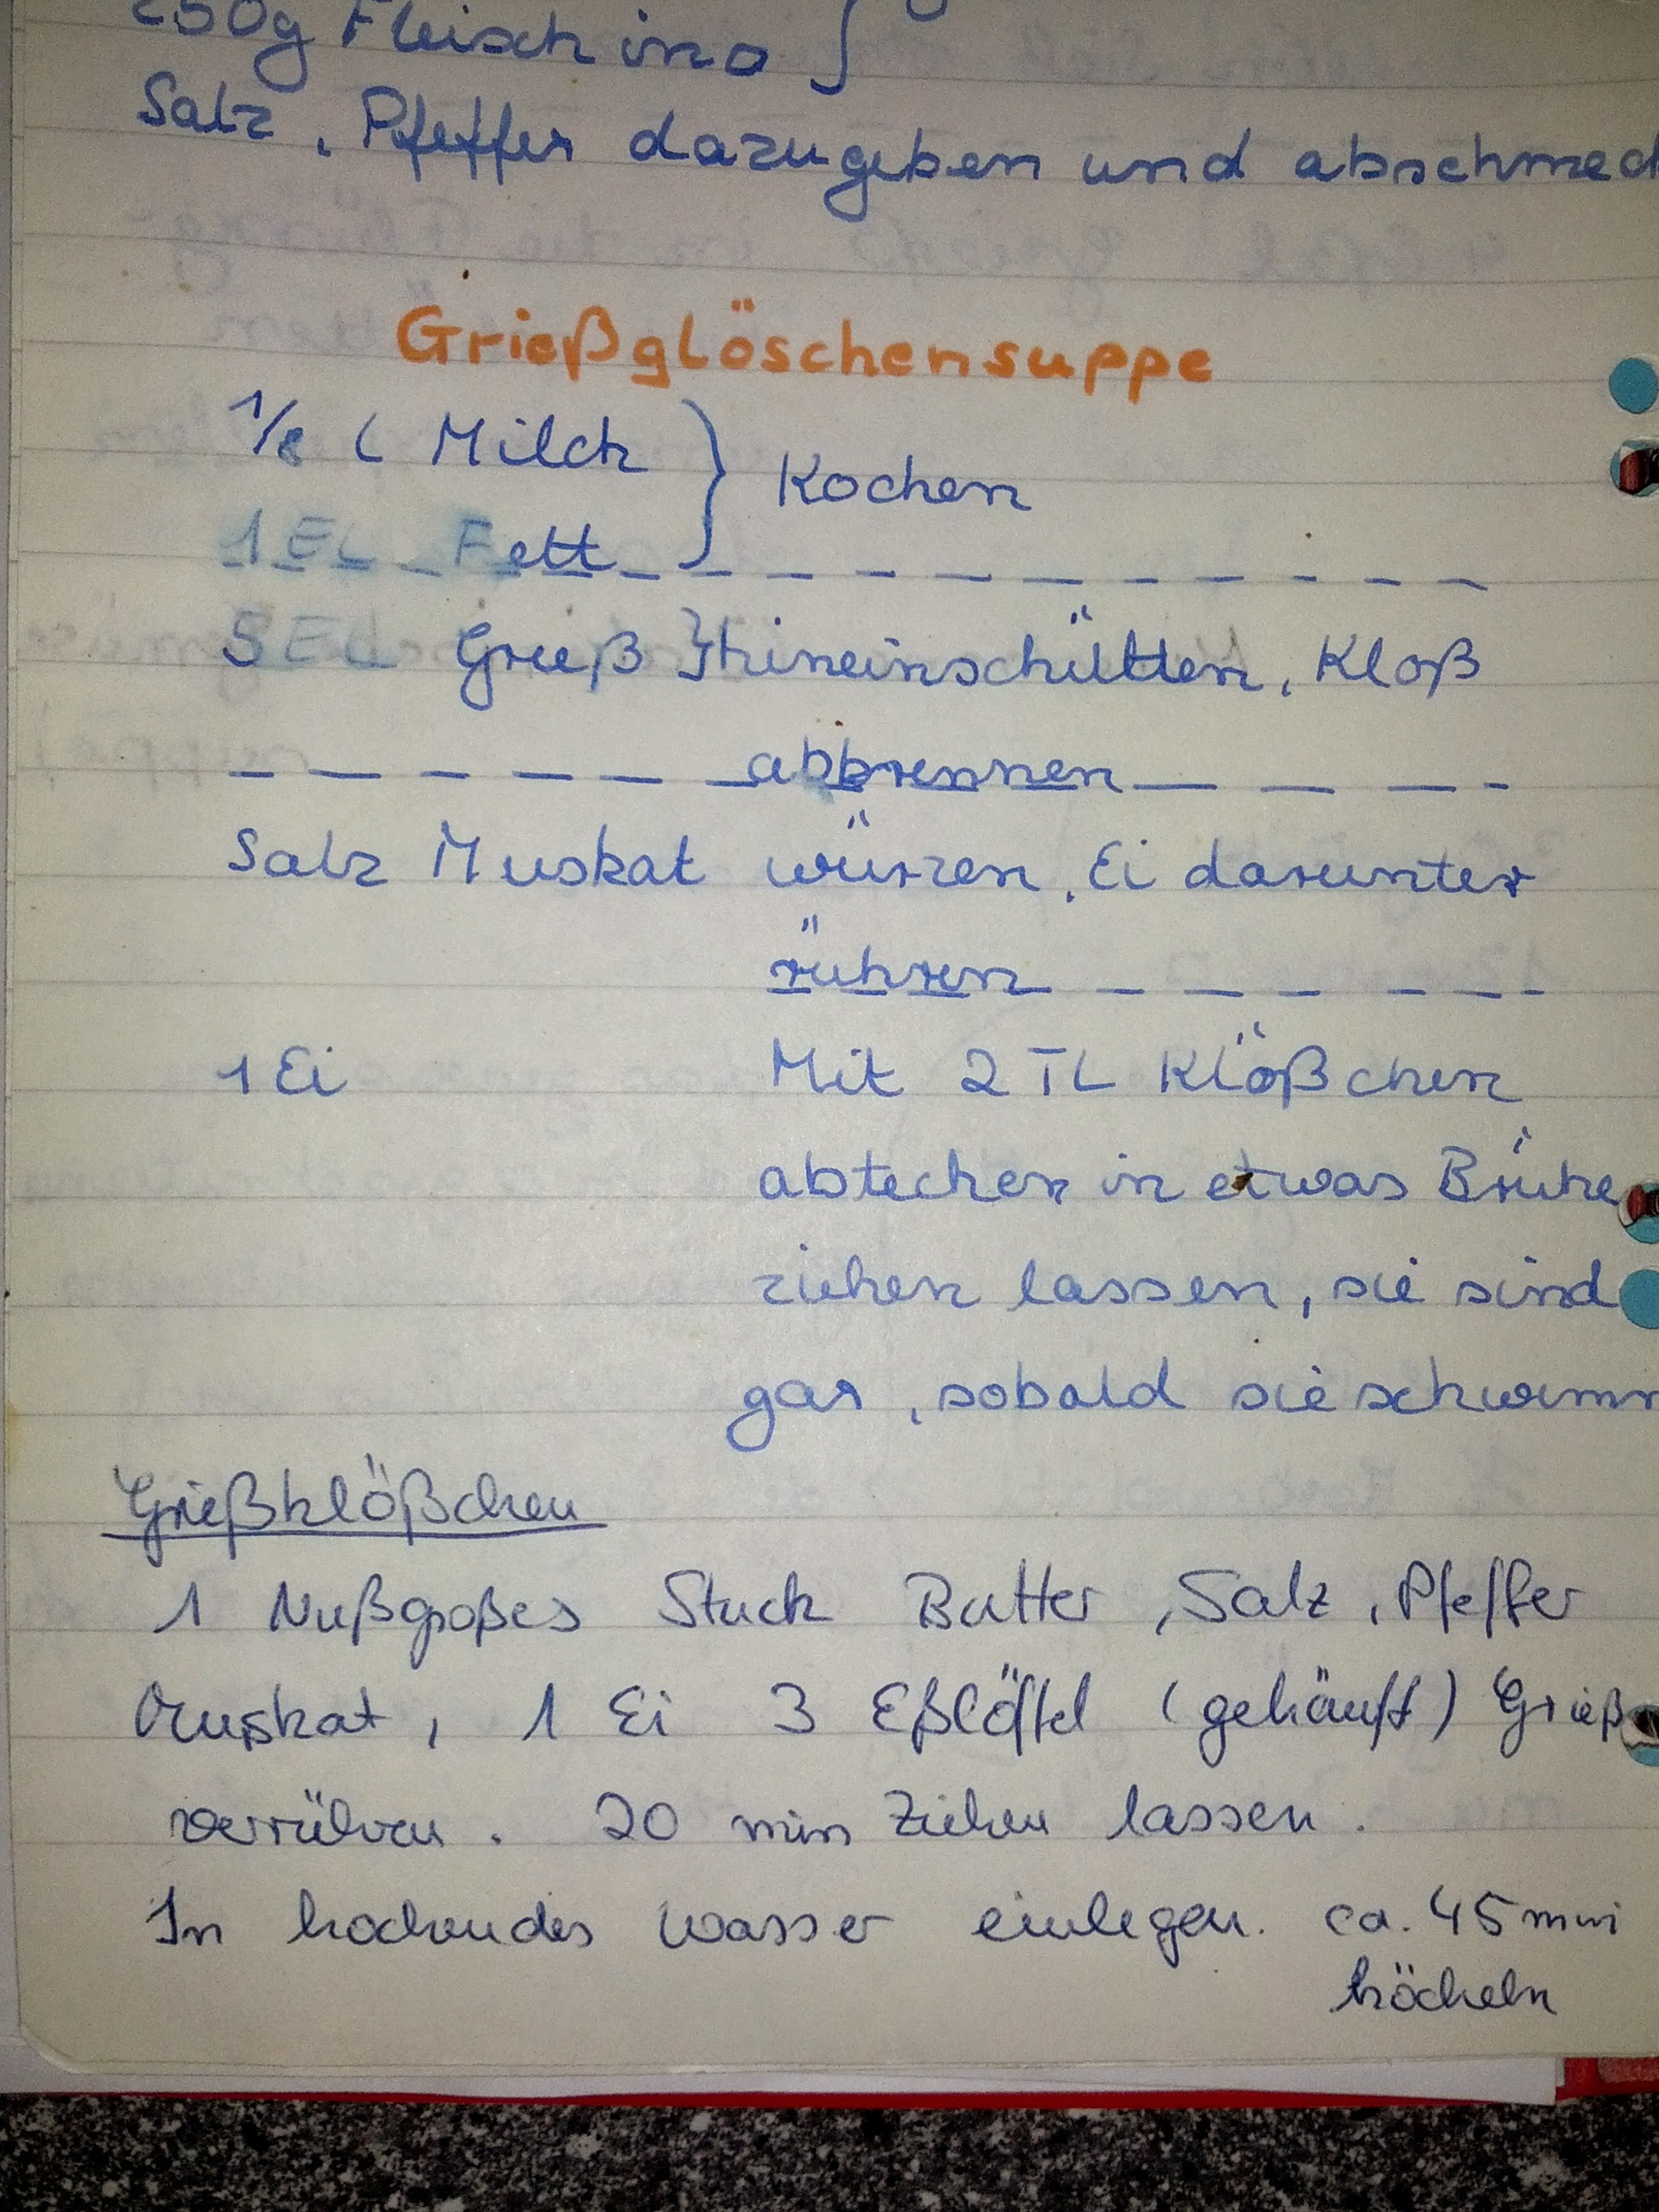 250g Fleisch ino }
Salz, Pfeffer dazugeben und abschmeck
Grießglöschensuppe
1/8 l Milch } Kochen
1 EL Fett
5 EL Grieß } hineinschütten, Kloß
abbrennen
Salz Muskat würzen, Ei darunter
rühren
1 Ei Mit 2 TL Klößchen
abtechen in etwas Brühe
ziehen lassen, sie sind
gar, sobald sie schwimm
Grießklößchen
1 Nußgroßes Stuck Butter, Salz, Pfeffer
Muskat, 1 Ei 3 Eßlöffel (gehäuft) Grieß
verrühren. 20 min Ziehen lassen.
In kochendes Wasser einlegen. ca. 45 min
köcheln